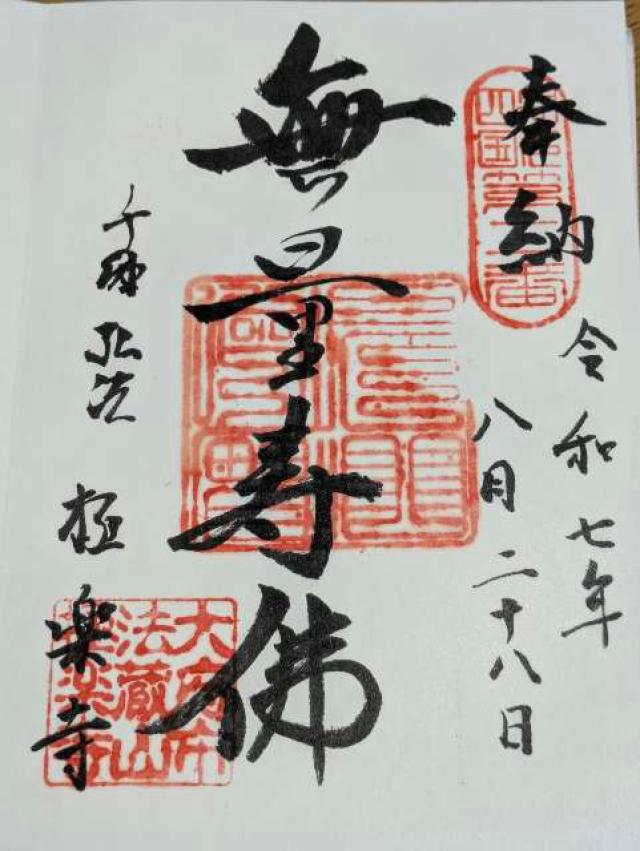 奉納
令和七年
八月二十八日
無量寿佛
弘法 極楽寺
大府市
法蔵山
極楽寺